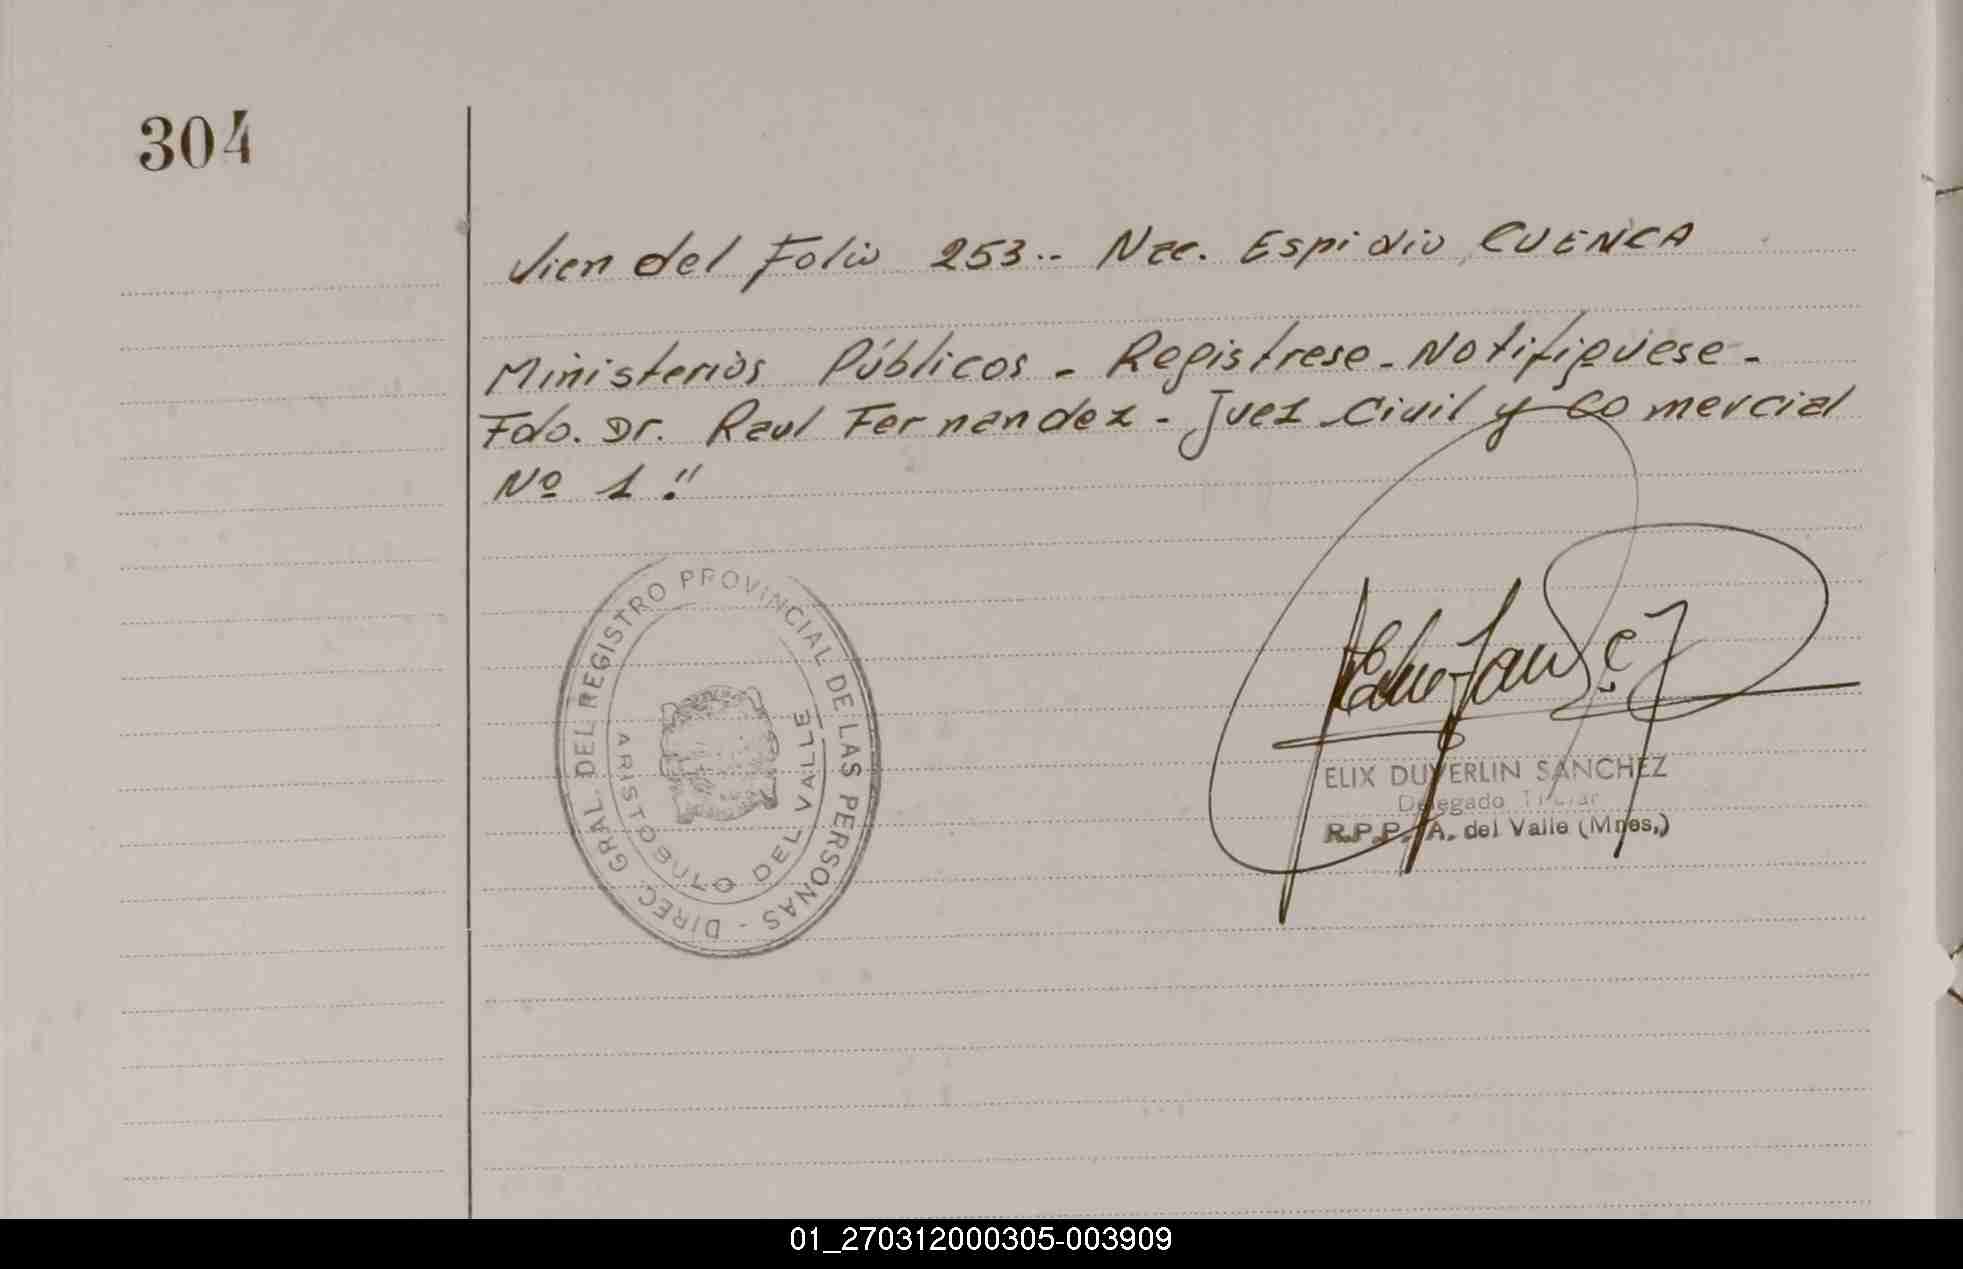 304
Vien del Folio 253.- Nac. Espidio CUENCA
Ministerios Públicos - Registrese - Notifiquese -
Fdo. Dr. Raul Fernandez - Juez Civil y Comercial
Nº 1."
DIREC GRAL. DEL REGISTRO PROVINCIAL DE LAS PERSONAS -
ARISTOBULO DEL VALLE
ELIX DUVERLIN SANCHEZ
Delegado Titular
R.P.P. A. del Valle (Mnes.)
01_270312000305-003909